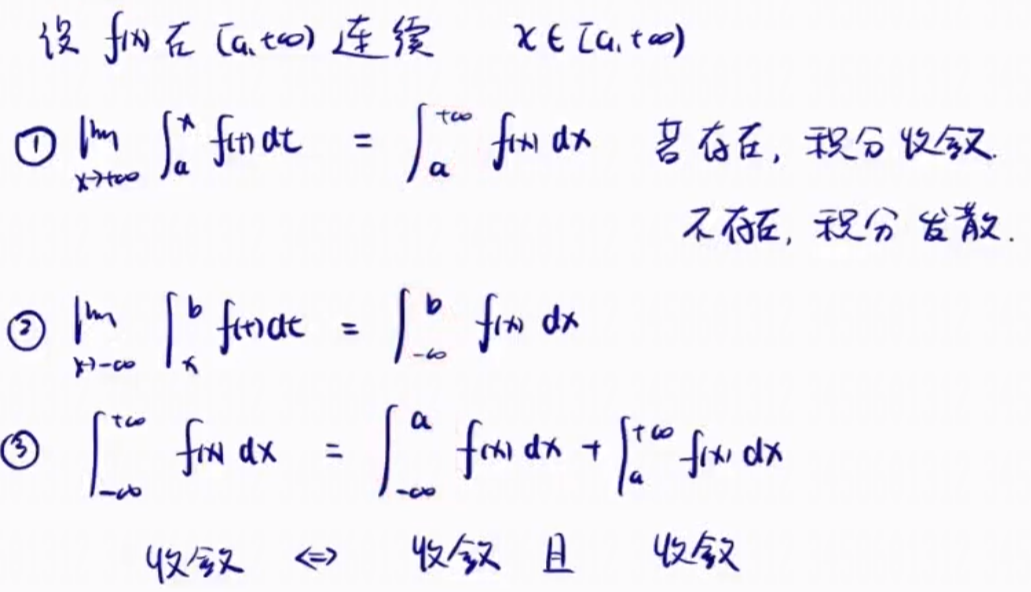 设 f(x) 在 [a,+∞) 连续 x∈[a,+∞)
① lim_{x→+∞} ∫_a^x f(t)dt = ∫_a^{+∞} f(x)dx 若存在, 积分收敛.
不存在, 积分发散.
② lim_{x→-∞} ∫_x^b f(t)dt = ∫_{-∞}^b f(x)dx
③ ∫_{-∞}^{+∞} f(x)dx = ∫_{-∞}^a f(x)dx + ∫_a^{+∞} f(x)dx
收敛 ⇔ 收敛 且 收敛